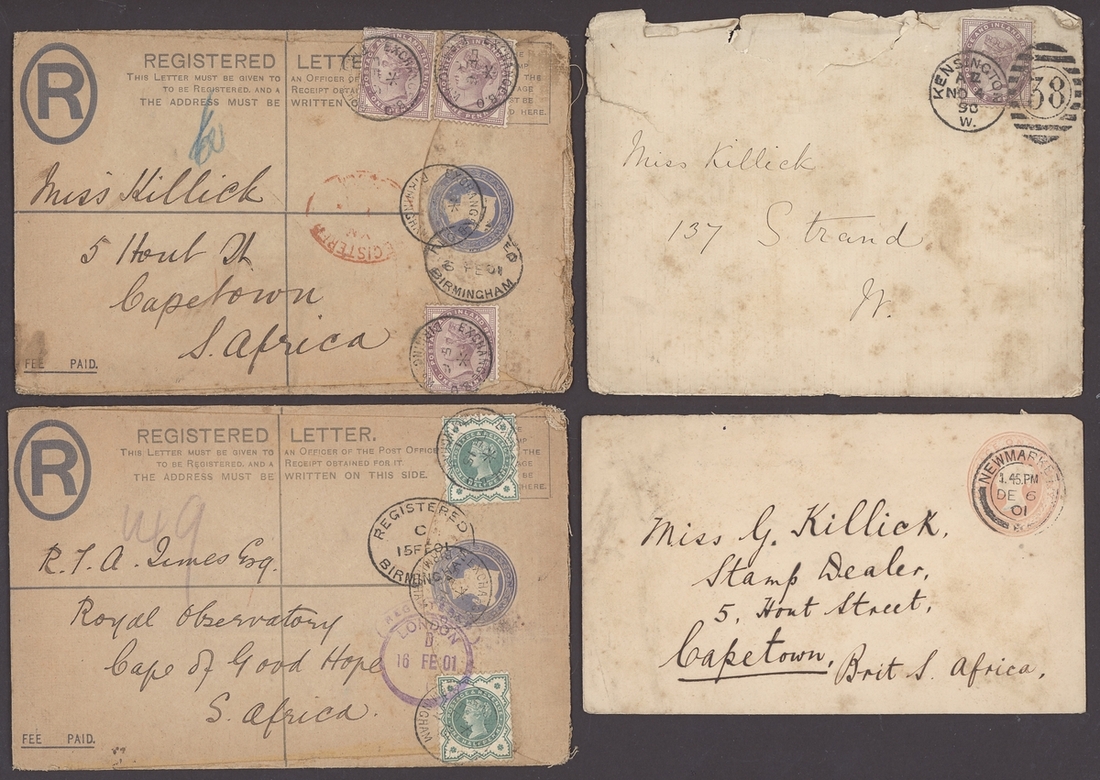 REGISTERED LETTER.
THIS LETTER MUST BE GIVEN TO AN OFFICER OF
TO BE REGISTERED, AND A RECEIPT OBTAINED
THE ADDRESS MUST BE WRITTEN ON
R
Miss Killick
5 Hout St
Capetown
S. Africa
FEE PAID.
REGISTERED
BIRMINGHAM
EXCHANGE
FE 01
BIRMINGHAM
KENSINGTON
NO
90
W.
38
Miss Killick
137 Strand
W.
REGISTERED LETTER.
THIS LETTER MUST BE GIVEN TO AN OFFICER OF THE POST OFFICE
TO BE REGISTERED, AND A RECEIPT OBTAINED FOR IT.
THE ADDRESS MUST BE WRITTEN ON THIS SIDE.
R
449
R. T. A. Innes Esq.
Royal Observatory
Cape of Good Hope
S. Africa.
FEE PAID.
REGISTERED
C
15 FE 01
LONDON
D
16 FE 01
NEWMARKET
1.45 PM
DE 6
01
Miss G. Killick,
Stamp Dealer,
5, Hout Street,
Capetown,
Brit S. Africa.